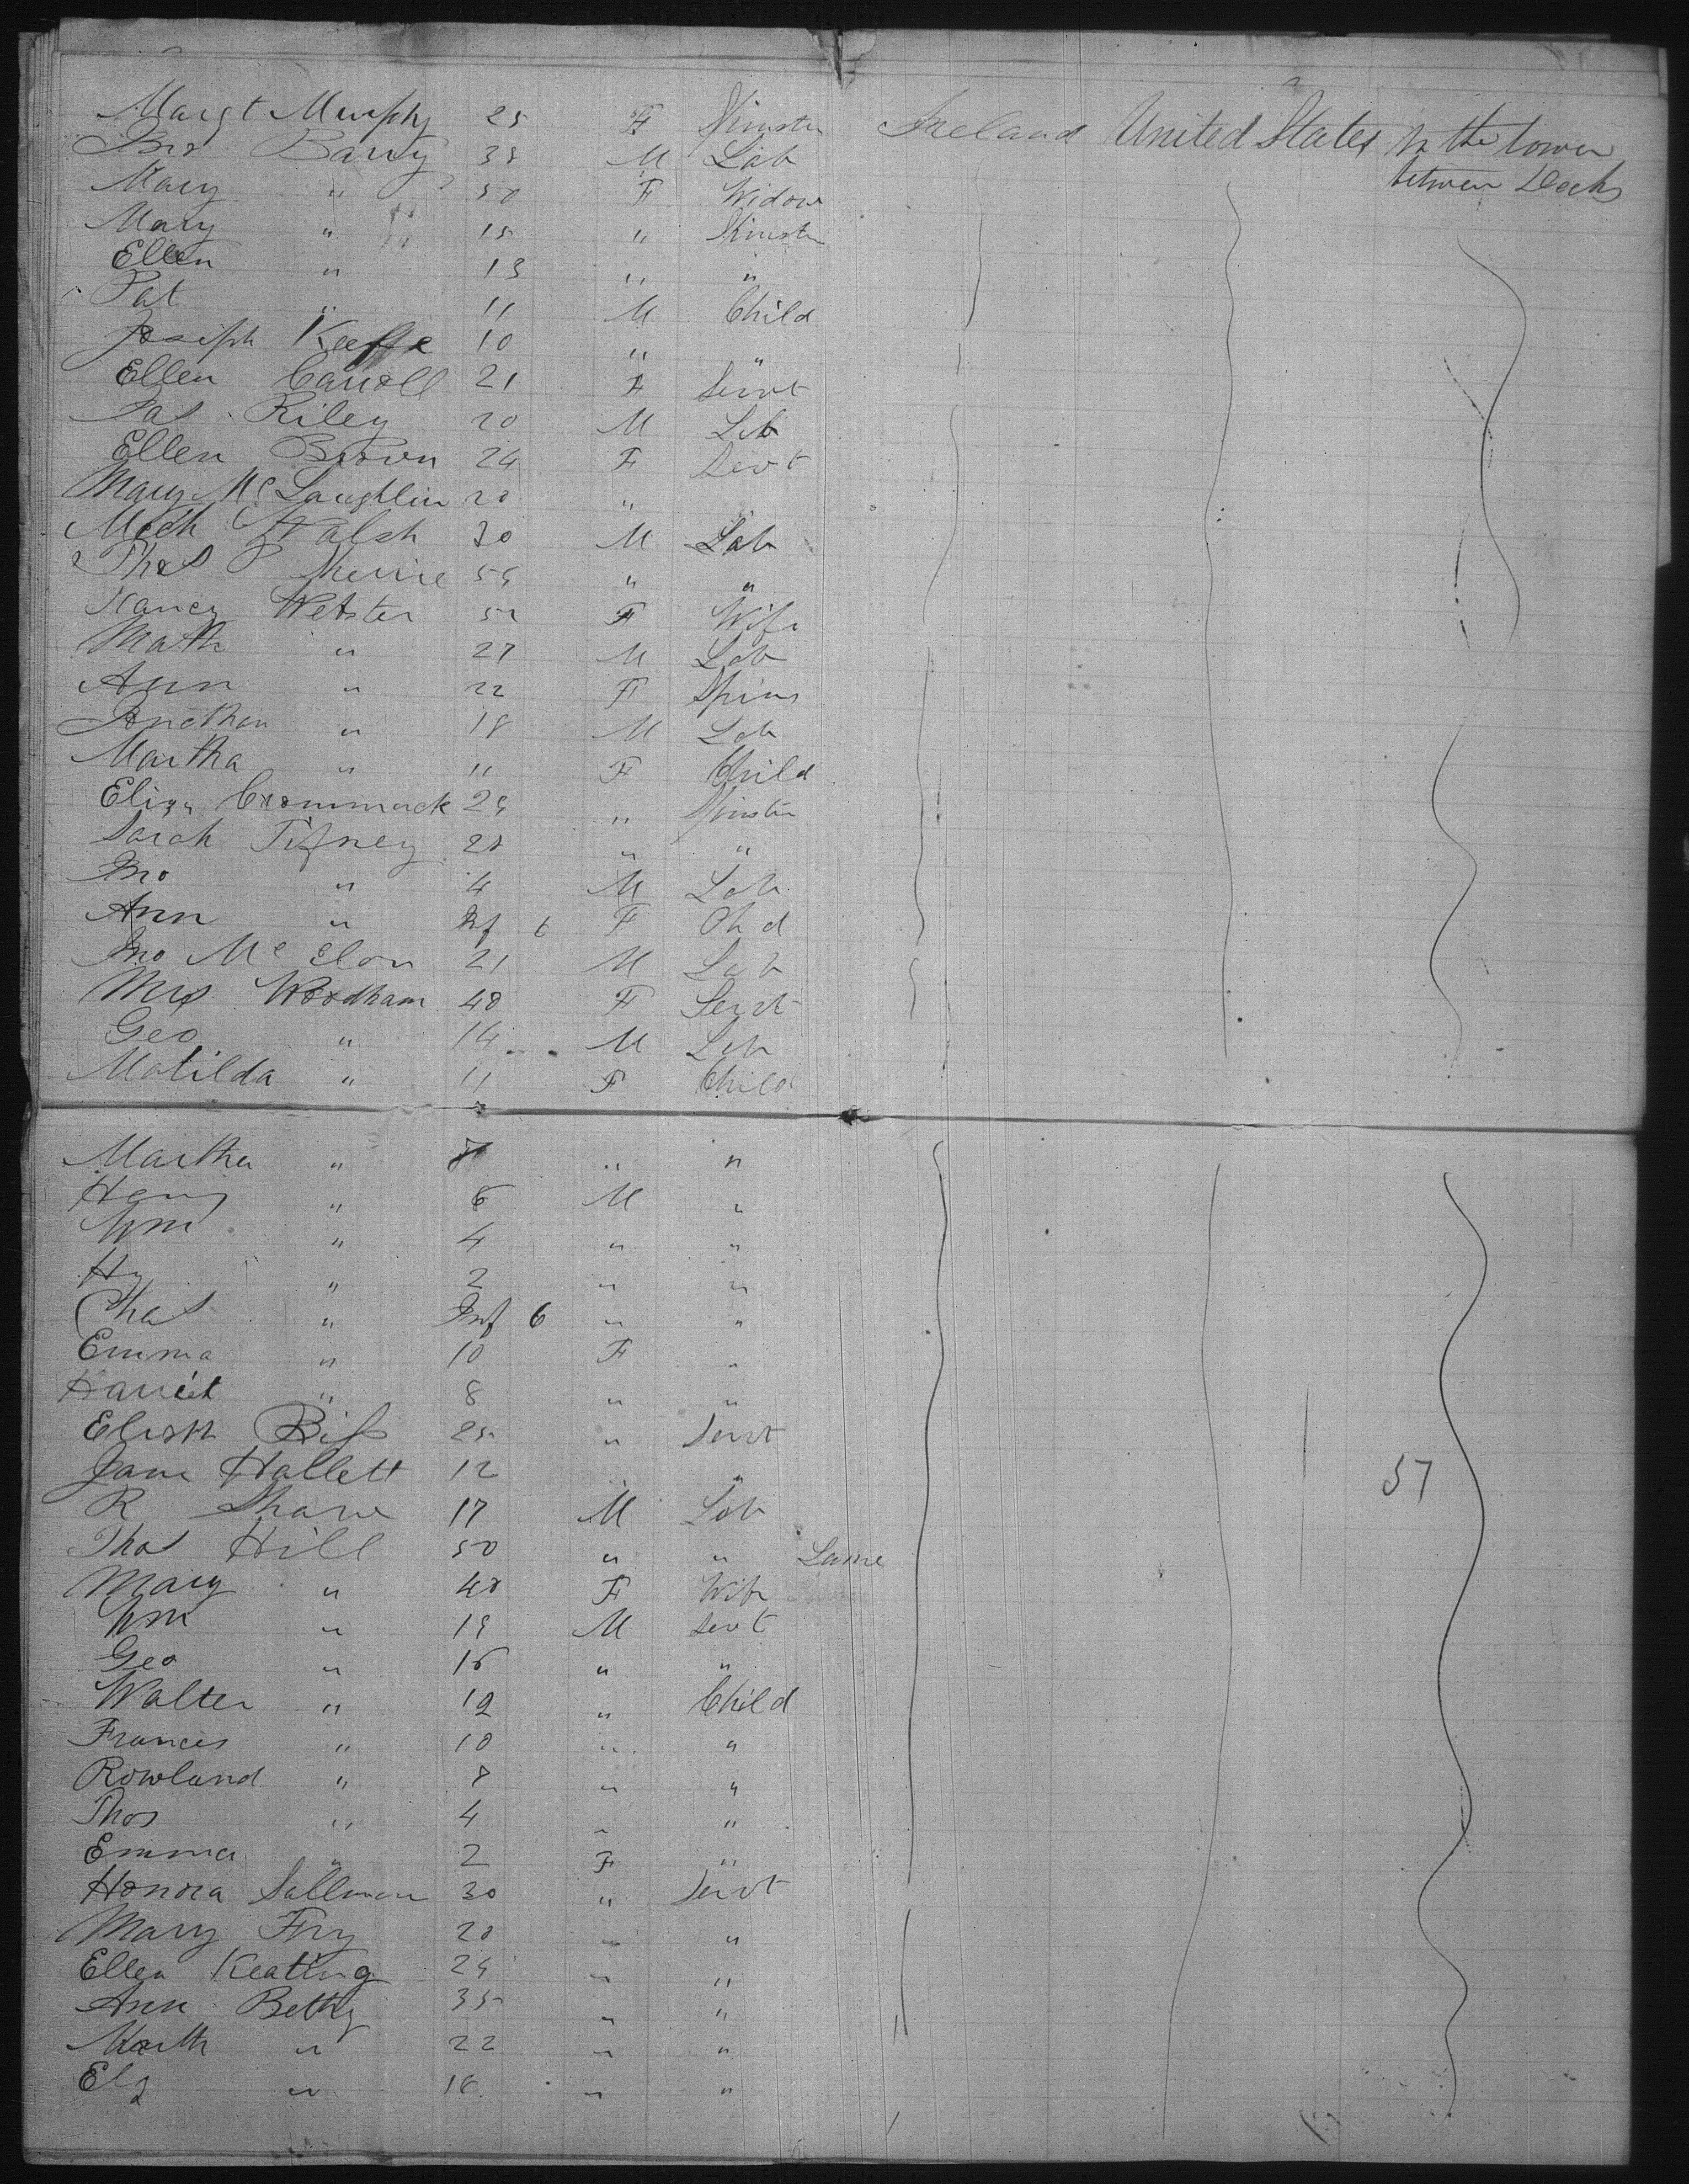 Margt Murphy 25 F Spinster Ireland United States In the lower
between Decks
Jno Barry 38 M Lab
Mary " 50 F Widow
Mary " 15 " Spinster
Ellen " 13 " "
Pat " 11 M Child
Joseph Keeffe 10 " "
Ellen Carroll 21 F Servt
Jas Riley 20 M Lab
Ellen Brown 24 F Servt
Mary McLaughlin 20 " "
Mich Walsh 30 M Lab
Thos " "
Nancy Webster F Wife
Math " 27 M Lab
Ann " 22 F Spins
Jonathan " 18 M Lab
Martha " 11 F Child
Eliza Crommack " Spinster
Sarah Tifney 28 " "
Jno " 4 M Lab
Ann " Inf 6 F Chd
Jno 21 M Lab
Mrs Woodham 40 F Servt
Geo " 14 M Lab
Matilda " 11 F Child
Martha " " "
Harry " 6 M "
Wm " 4 " "
Hy " 2 " "
Chas " Inf 6 " "
Emma " 10 F "
Harriet " 8 " "
Elizth 25 " Servt
Jane Hallett 12 " "
R Share 17 M Lab 57
Thos Hill 50 " " Lame
Mary " 48 F Wife
Wm " 19 M Servt
Geo " 16 " "
Walter " 12 " Child
Francis " 10 " "
Rowland " 8 " "
Thos " 4 " "
Emma " 2 F "
Honora 30 " Servt
Mary Fry 20 " "
Ellen Keating 24 " "
Ann Bethy 35 " "
Marth " 22 " "
Elz " 18 " "